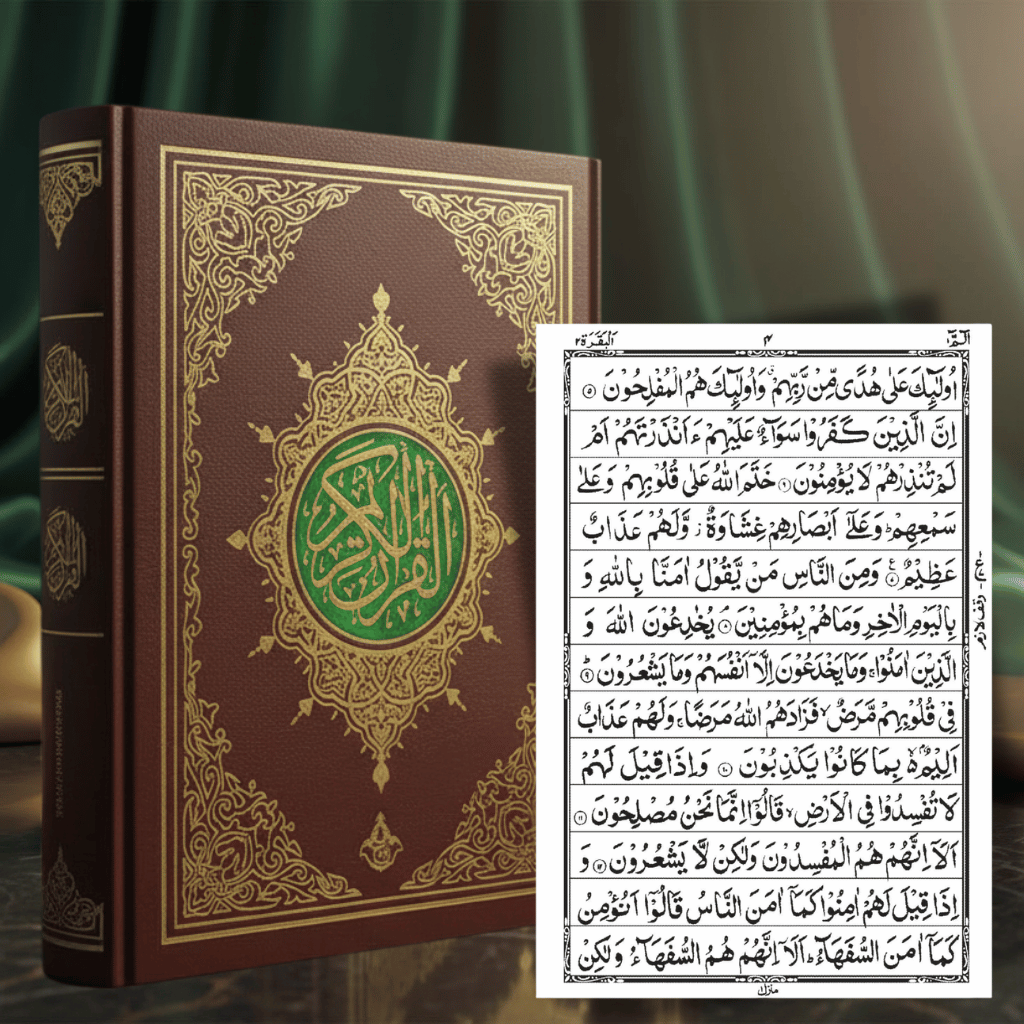 القرآن الكريم
الٓمّٓ ١
٤
اَلْبَقَرَة ٢
اُولٰٓئِكَ عَلٰى هُدًى مِّنْ رَّبِّهِمْ ۙ وَاُولٰٓئِكَ هُمُ الْمُفْلِحُوْنَ ۝۵
اِنَّ الَّذِيْنَ كَفَرُوْا سَوَآءٌ عَلَيْهِمْ ءَاَنْذَرْتَهُمْ اَمْ
لَمْ تُنْذِرْهُمْ لَا يُؤْمِنُوْنَ ۝۶ خَتَمَ اللّٰهُ عَلٰى قُلُوْبِهِمْ وَعَلٰى
سَمْعِهِمْ ؕ وَعَلٰٓى اَبْصَارِهِمْ غِشَاوَةٌ ز وَّلَهُمْ عَذَابٌ
عَظِيْمٌ ۝۷ ع وَمِنَ النَّاسِ مَنْ يَّقُوْلُ اٰمَنَّا بِاللّٰهِ وَ
بِالْيَوْمِ الْاٰخِرِ وَمَا هُمْ بِمُؤْمِنِيْنَ ۝۸ يُخٰدِعُوْنَ اللّٰهَ وَ
الَّذِيْنَ اٰمَنُوْا ۚ وَمَا يَخْدَعُوْنَ اِلَّاۤ اَنْفُسَهُمْ وَمَا يَشْعُرُوْنَ ۝۹ؕ
فِيْ قُلُوْبِهِمْ مَّرَضٌ ۙ فَزَادَهُمُ اللّٰهُ مَرَضًا ۚ وَلَهُمْ عَذَابٌ
اَلِيْمٌۢ ۙ بِمَا كَانُوْا يَكْذِبُوْنَ ۝۱۰ وَاِذَا قِيْلَ لَهُمْ
لَا تُفْسِدُوْا فِي الْاَرْضِ ۙ قَالُوْۤا اِنَّمَا نَحْنُ مُصْلِحُوْنَ ۝۱۱
اَلَاۤ اِنَّهُمْ هُمُ الْمُفْسِدُوْنَ وَلٰكِنْ لَّا يَشْعُرُوْنَ ۝۱۲ وَ
اِذَا قِيْلَ لَهُمْ اٰمِنُوْا كَمَاۤ اٰمَنَ النَّاسُ قَالُوْۤا اَنُؤْمِنُ
كَمَاۤ اٰمَنَ السُّفَهَآءُ ؕ اَلَاۤ اِنَّهُمْ هُمُ السُّفَهَآءُ وَلٰكِنْ
وقف لازم
منزل